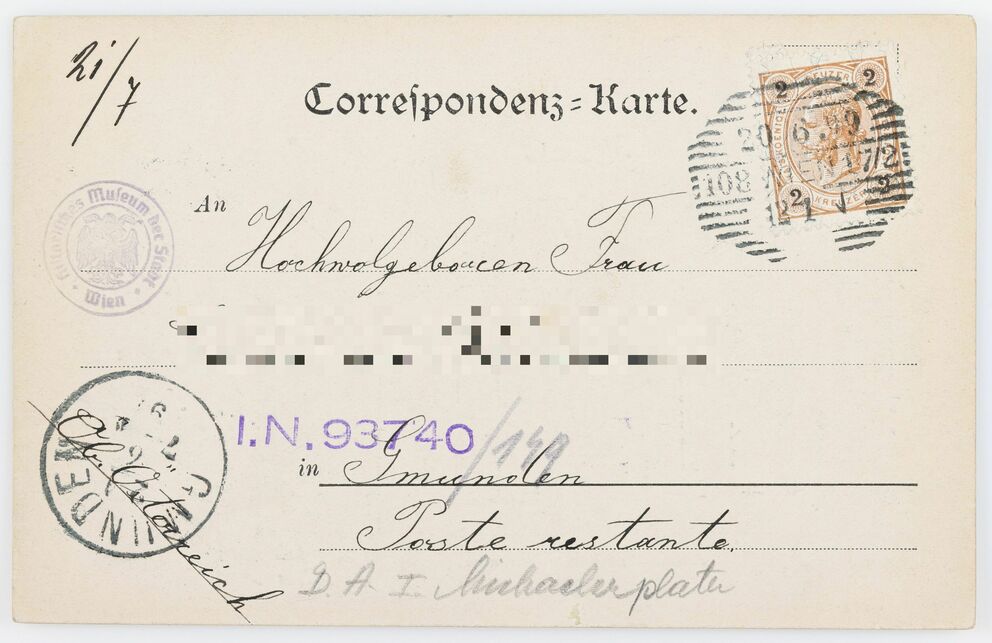 21/7
Correspondenz-Karte.
2 KREUZER 2
20.6.99
108 WIEN 17/2
2 KREUZER 2
An
Hochwolgeboren Frau
Museum der Stadt
Wien
I.N. 93740/149
in Gmunden
GMUNDEN
Ob. Östereich
Poste restante.
D. A. I. Michaelerplatz